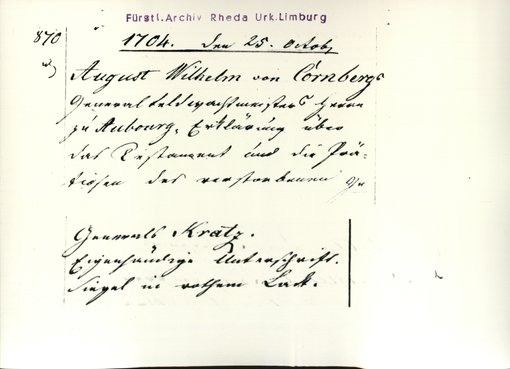 Fürstl. Archiv Rheda Urk. Limburg
870
1704. den 25. Octob.
August Wilhelm von Cornbergs
General feldwachtmeisters Herrn
zu Aubourg, Erklärung über
das Testament und die Prä-
tiosen des verstorbenen Ge
Generals Kratz.
Eigenhändige Unterschrift.
Siegel in rothem Lack.